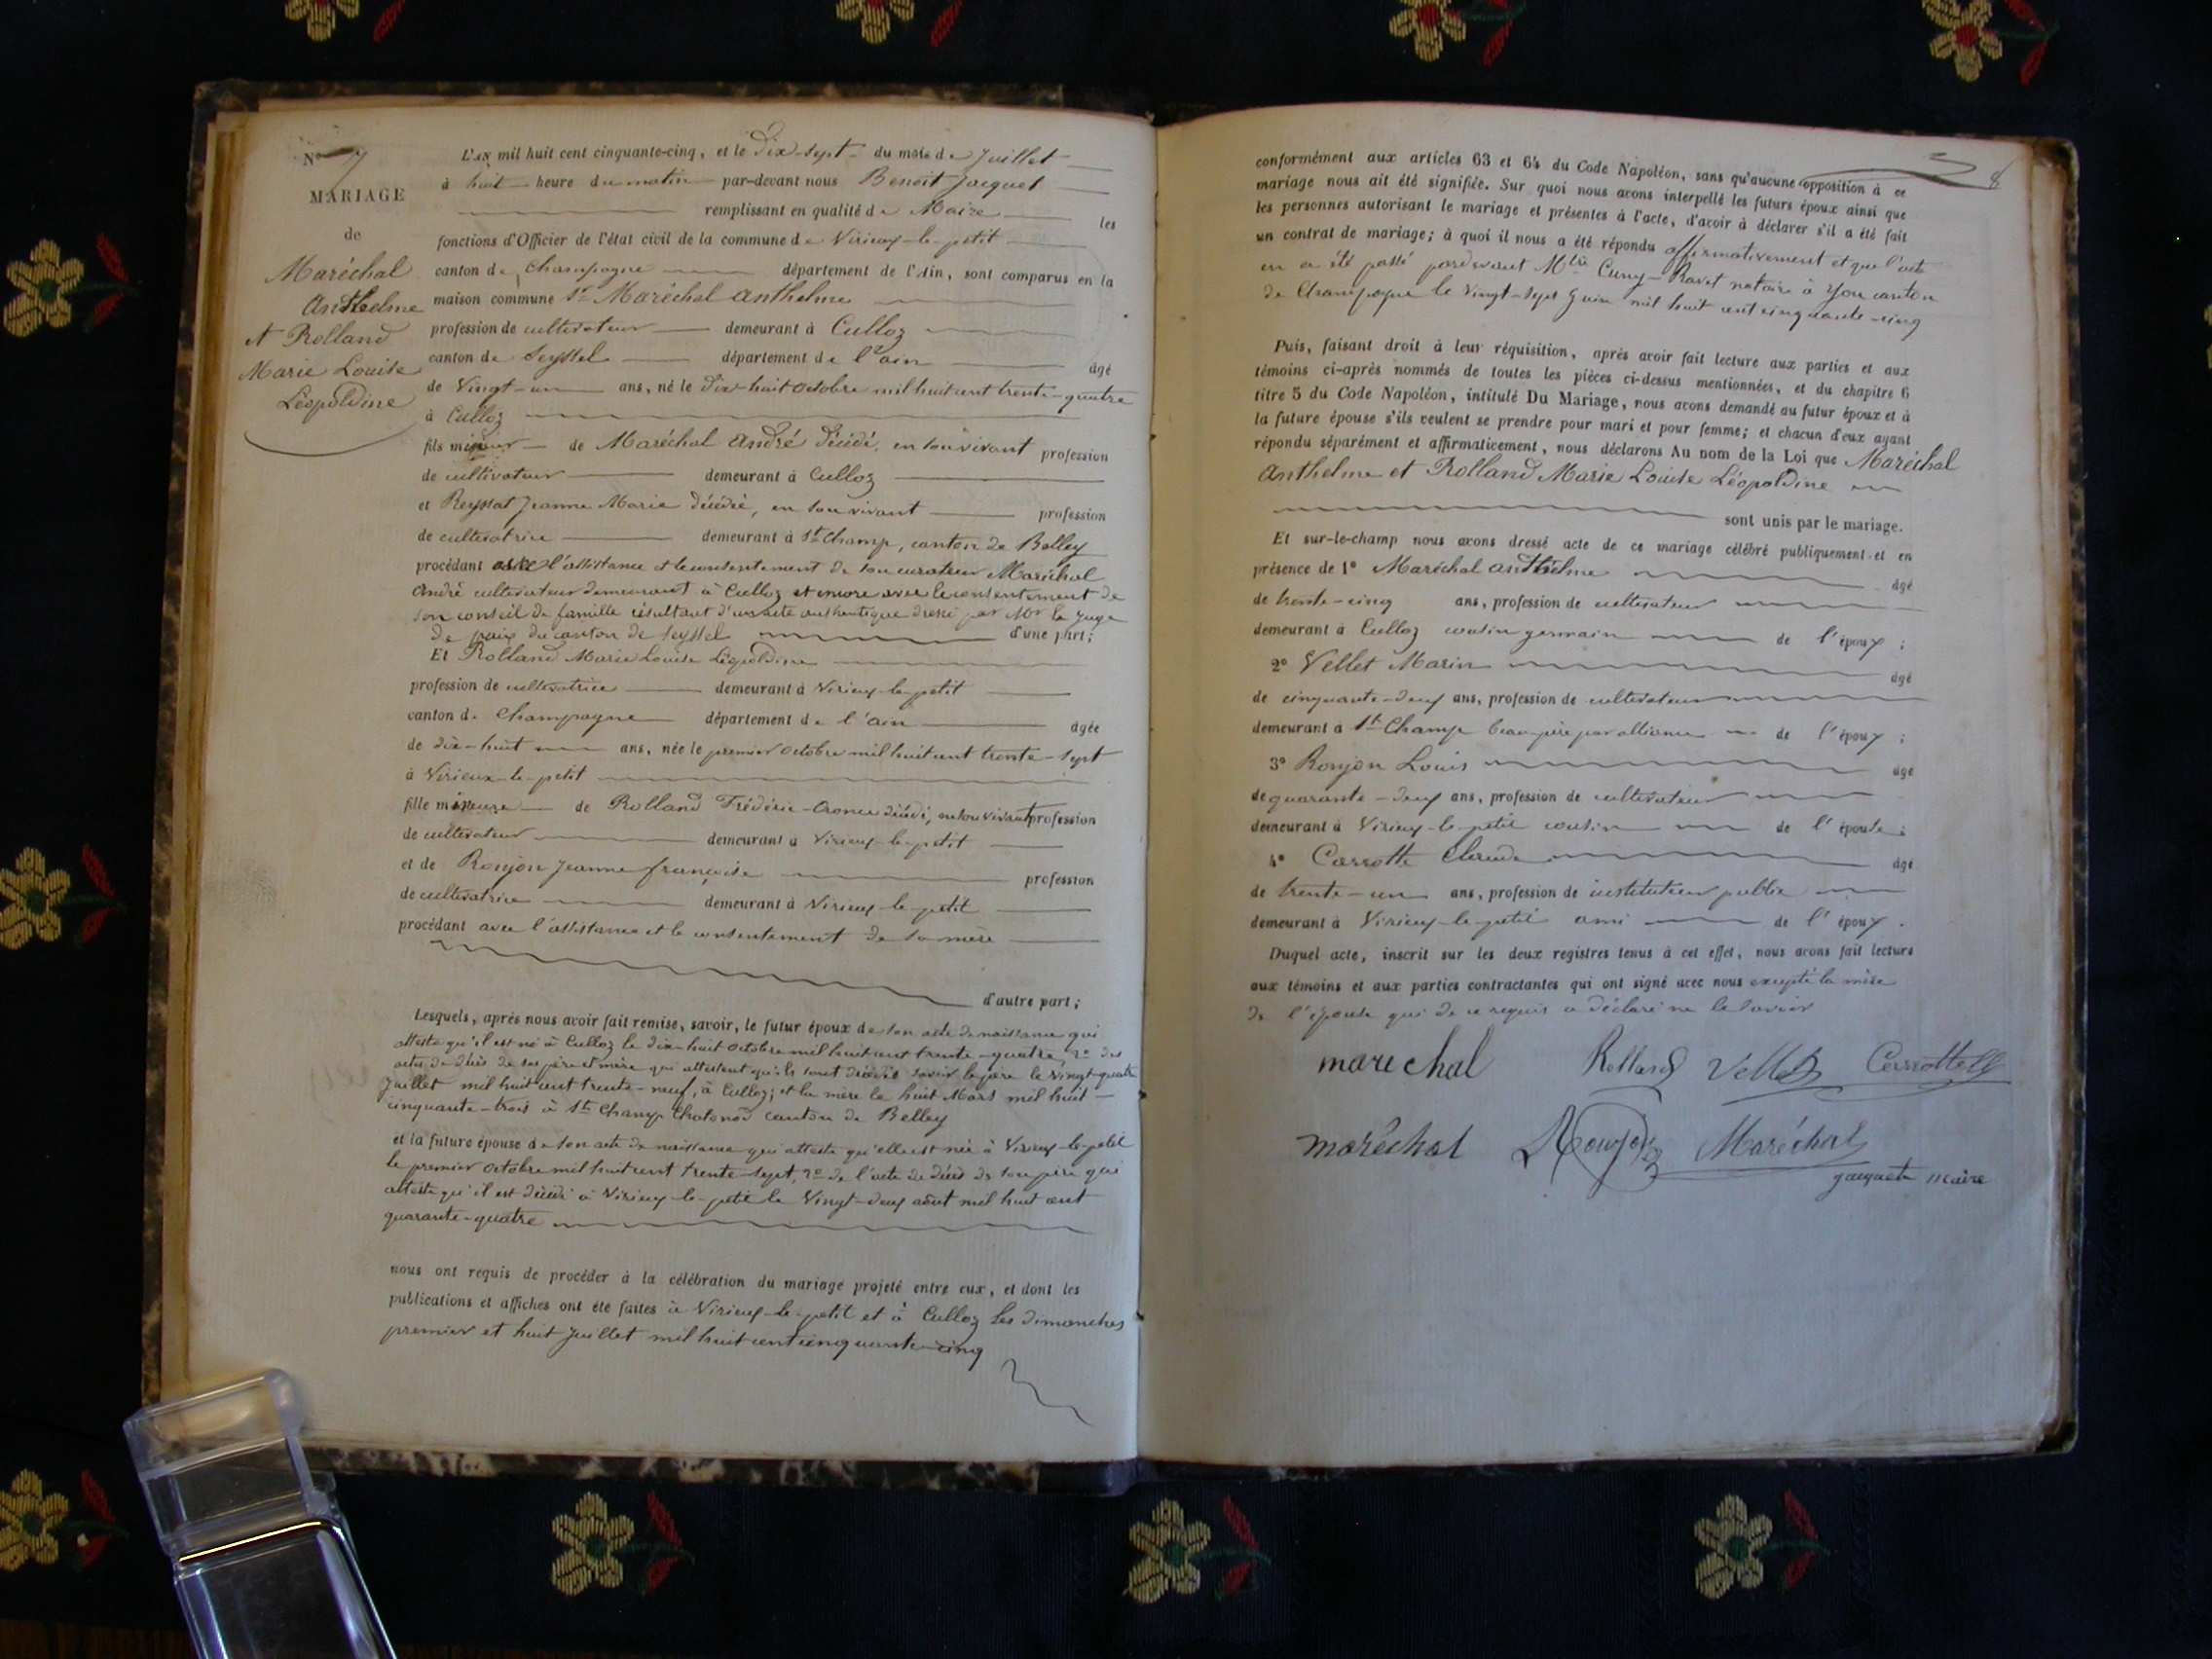 N° 7
MARIAGE
de
Maréchal
Anthelme
et Rolland
Marie Louise
Léopoldine
L'AN mil huit cent cinquante-cinq, et le Dix-sept du mois de Juillet
à huit heure du matin par-devant nous Benoit Jacquet
remplissant en qualité de Maire les
fonctions d'Officier de l'état civil de la commune de Virieux-le-petit
canton de Champagne département de l'Ain, sont comparus en la
maison commune 1° Maréchal Anthelme
profession de cultivateur demeurant à Culloz
canton de Seyssel département de l'ain âgé
de Vingt-un ans, né le Dix-huit octobre mil huit cent trente-quatre
à Culloz
fils mineur de Maréchal André décédé, en son vivant profession
de cultivateur demeurant à Culloz
et Reyssat Jeanne Marie décédée, en son vivant profession
de cultivatrice demeurant à St Champ, canton de Belley
procédant avec l'assistance et le consentement de son curateur Maréchal
André cultivateur demeurant à Culloz et encore avec le consentement de
son conseil de famille résultant d'un acte authentique dressé par Mr le Juge
de paix du canton de Seyssel d'une part;
Et Rolland Marie Louise Léopoldine
profession de cultivatrice demeurant à Virieux-le-petit
canton de Champagne département de l'ain âgée
de dix-huit ans, née le premier octobre mil huit cent trente-sept
à Virieux-le-petit
fille mineure de Rolland Frédéric décédé, en son vivant profession
de cultivateur demeurant à Virieux-le-petit
et de Roujon Jeanne françoise profession
de cultivatrice demeurant à Virieux-le-petit
procédant avec l'assistance et le consentement de sa mère
d'autre part;
Lesquels, après nous avoir fait remise, savoir, le futur époux de son acte de naissance qui
atteste qu'il est né à Culloz le dix-huit octobre mil huit cent trente-quatre, 2° des
actes de décès de ses père et mère qui attestent qu'ils sont décédés savoir le père le vingt-quatre
Juillet mil huit cent trente-neuf, à Culloz; et la mère le huit Mars mil huit
cinquante-trois à St Champ Chatonod canton de Belley
et la future épouse de son acte de naissance qui atteste qu'elle est née à Virieux-le-petit
le premier octobre mil huit cent trente-sept, 2° de l'acte de décès de son père qui
atteste qu'il est décédé à Virieux-le-petit le Vingt-deux août mil huit cent
quarante-quatre
nous ont requis de procéder à la célébration du mariage projeté entre eux, et dont les
publications et affiches ont été faites à Virieux-le-petit et à Culloz les dimanches
premier et huit Juillet mil huit cent cinquante-cinq
8
conformément aux articles 63 et 64 du Code Napoléon, sans qu'aucune opposition à ce
mariage nous ait été signifiée. Sur quoi nous avons interpellé les futurs époux ainsi que
les personnes autorisant le mariage et présentes à l'acte, d'avoir à déclarer s'il a été fait
un contrat de mariage; à quoi il nous a été répondu affirmativement et que l'acte
en a été passé pardevant Mtre Cuny-Ravet notaire à Yon canton
de Champagne le vingt-sept Juin mil huit cent cinquante-cinq
Puis, faisant droit à leur réquisition, après avoir fait lecture aux parties et aux
témoins ci-après nommés de toutes les pièces ci-dessus mentionnées, et du chapitre 6
titre 5 du Code Napoléon, intitulé Du Mariage, nous avons demandé au futur époux et à
la future épouse s'ils veulent se prendre pour mari et pour femme; et chacun d'eux ayant
répondu séparément et affirmativement, nous déclarons Au nom de la Loi que Maréchal
Anthelme et Rolland Marie Louise Léopoldine
sont unis par le mariage.
Et sur-le-champ nous avons dressé acte de ce mariage célébré publiquement et en
présence de 1° Maréchal Anthelme âgé
de trente-cinq ans, profession de cultivateur
demeurant à Culloz cousin germain de l'époux;
2° Vellet Marin âgé
de cinquante-deux ans, profession de cultivateur
demeurant à St Champ beau-père par alliance de l'époux;
3° Roujon Louis âgé
de quarante-deux ans, profession de cultivateur
demeurant à Virieux-le-petit cousin de l'épouse;
4° Carrotte Claude âgé
de trente-un ans, profession de instituteur public
demeurant à Virieux-le-petit ami de l'époux.
Duquel acte, inscrit sur les deux registres tenus à cet effet, nous avons fait lecture
aux témoins et aux parties contractantes qui ont signé avec nous excepté la mère
de l'épouse qui de ce requis a déclaré ne le savoir
marechal Rolland Vellet Carrotte
maréchal Roujon Maréchal
jacquet maire